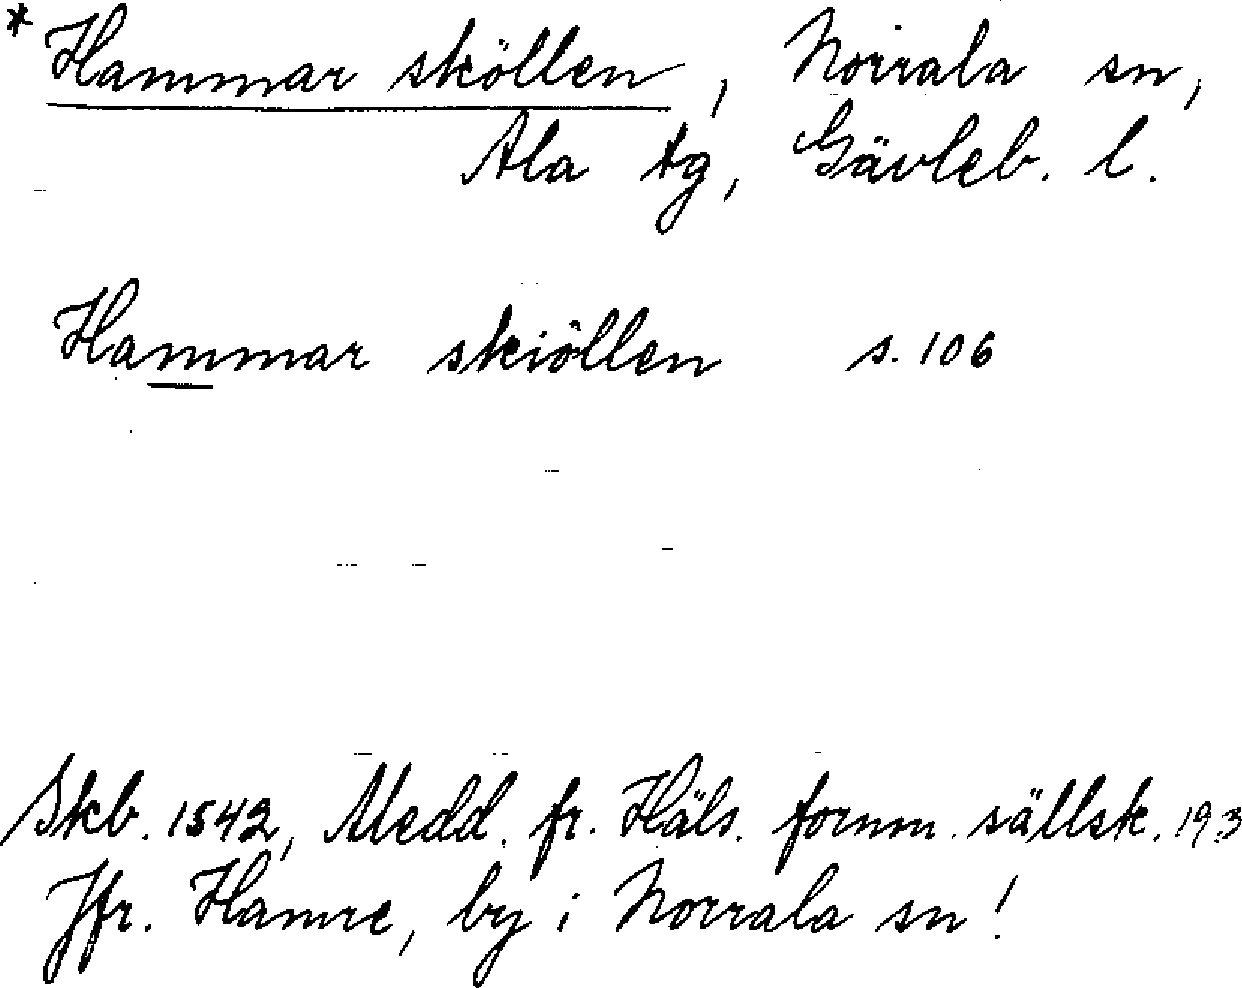 * Hammar sköllen, Norrala sn,
Ala tg, Gävleb. l.
Hammar skiöllen s. 106
Skb. 1542, Medd. fr. Häls. fornm. sällsk. 193
Jfr. Hamre, by i Norrala sn!